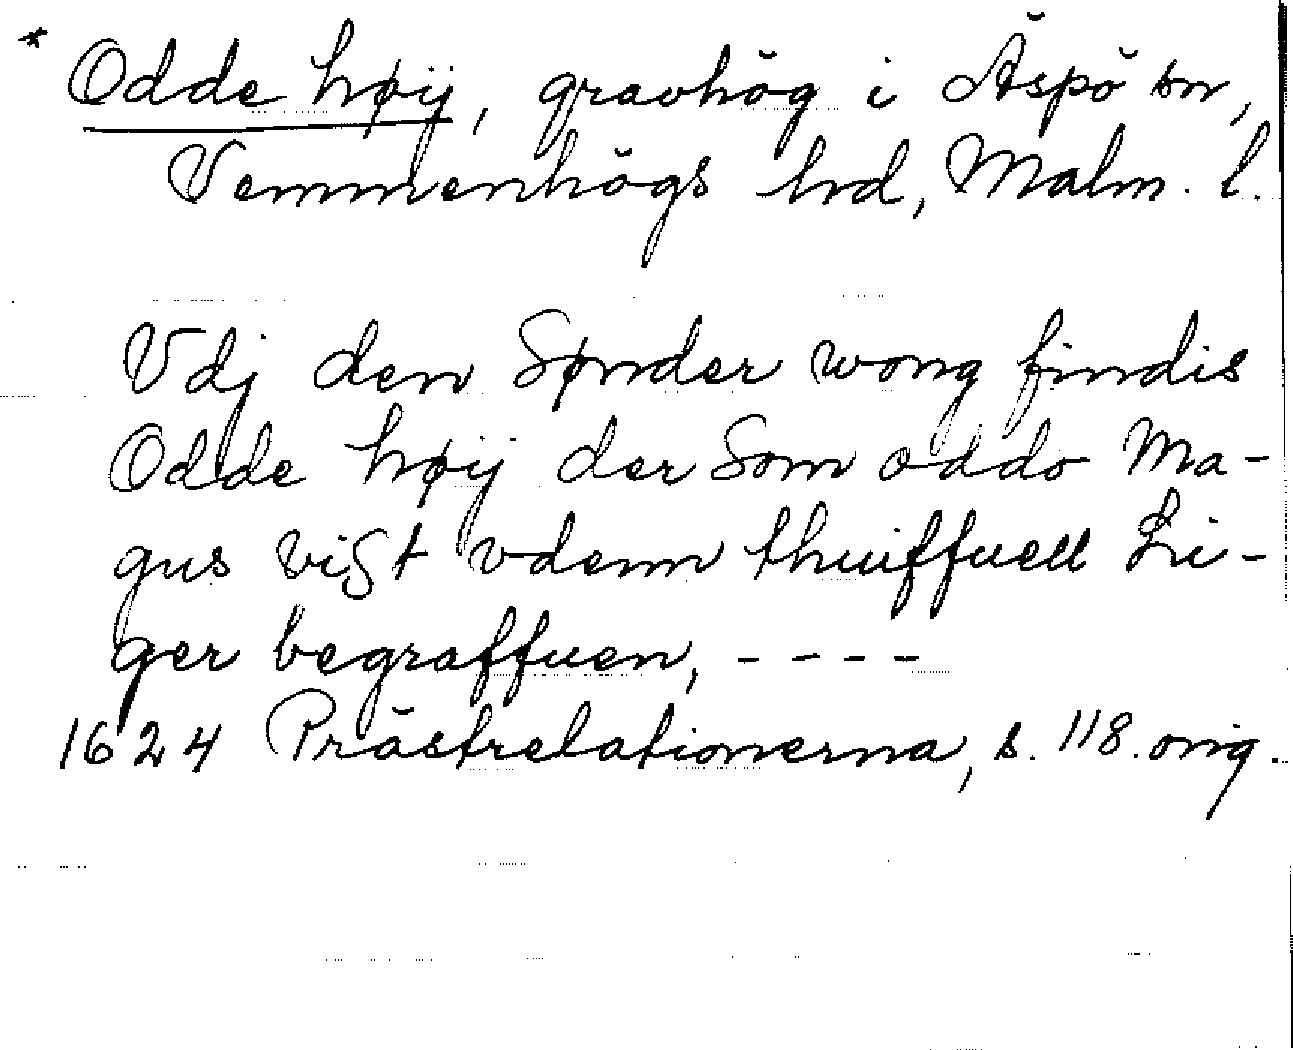 * Odde høij, gravhög i Äspö sn,
Vemmenhögs hrd, Malm. l.
Vdj den Sønder wong findis
Odde høij der Som oddo Ma-
gus viSt vdenn thuiffuell Li-
ger begraffuen, - - - -
1624 Prästrelationerna, s. 118. orig.